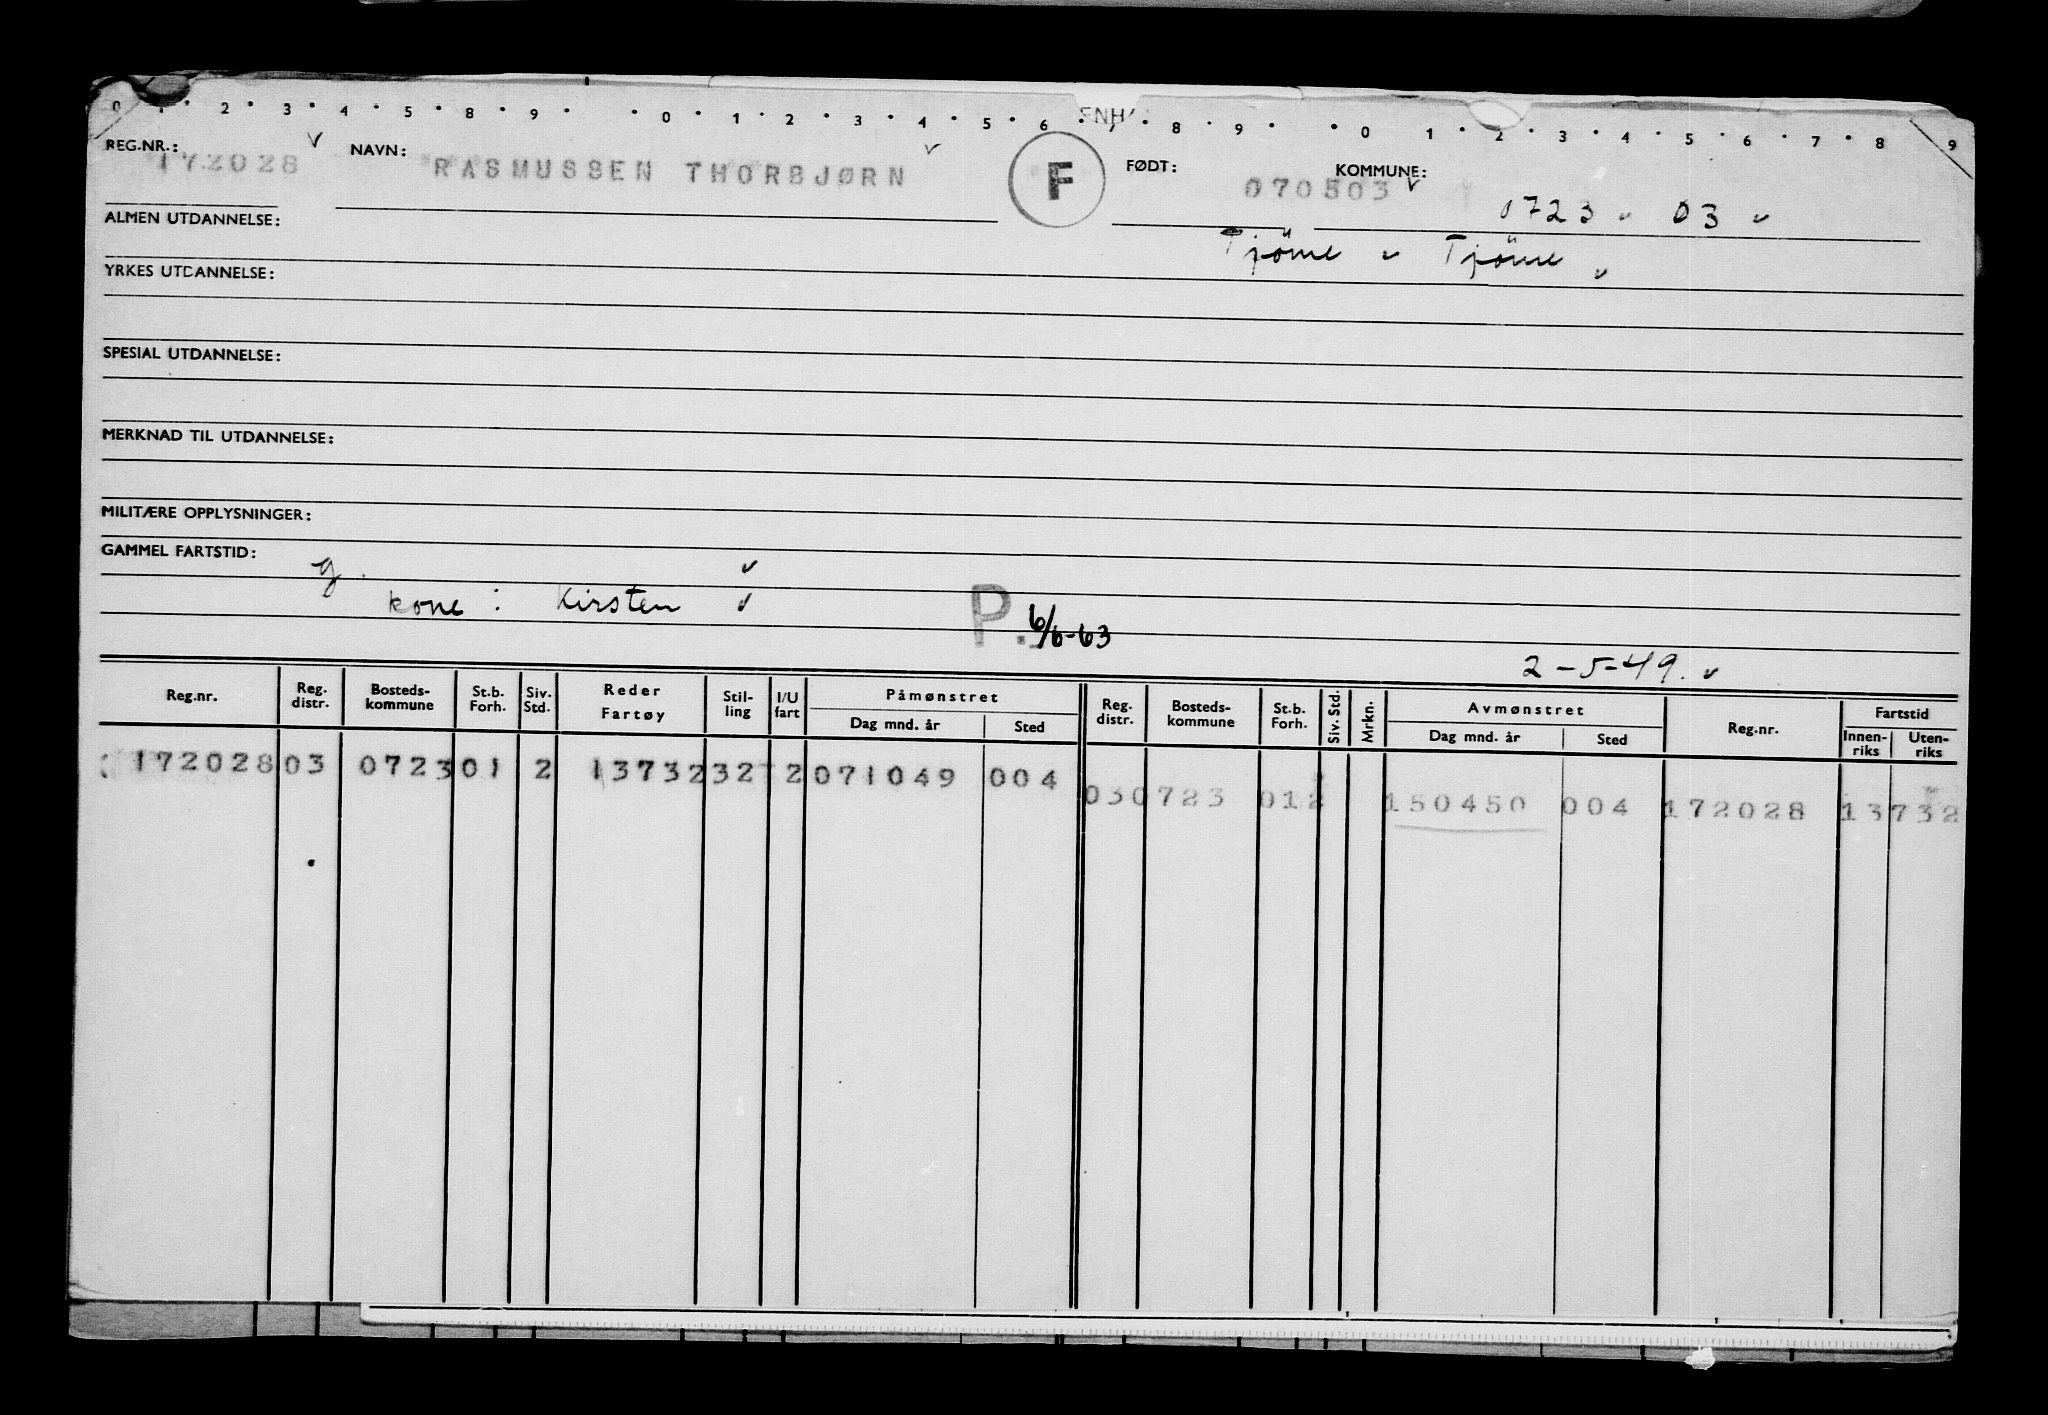 0 1 2 3 4 5 6 8 9 0 1 2 3 4 5 6 7 8 9 0 1 2 3 4 5 6 7 8 9
REG.NR.: 172028 NAVN: RASMUSSEN THORBJØRN F FØDT: 070503 KOMMUNE: 0723 03
ALMEN UTDANNELSE: Tjöme Tjöme
YRKES UTDANNELSE:
SPESIAL UTDANNELSE:
MERKNAD TIL UTDANNELSE:
MILITÆRE OPPLYSNINGER:
GAMMEL FARTSTID: g.
kone: Kirsten P. 6/6-63
2-5-49.
Reg.nr. Reg. distr. Bosteds-kommune St.b. Forh. Siv. Std. Reder Fartøy Stil-ling I/U fart Påmønstret Dag mnd. år Sted Reg. distr. Bosteds-kommune St.b. Forh. Siv. Std. Mrkn. Avmønstret Dag mnd. år Sted Reg.nr. Fartstid Innen-riks Uten-riks
172028 03 0723 01 2 13732 32 2 071049 004
03 0723 01 2 150450 004 172028 13732